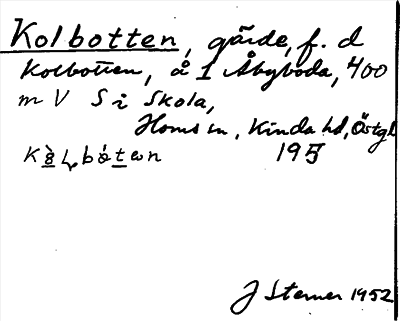 Kolbotten, gärde, f. d
Kolbotten, å 1 Åbyboda, 400
m V S i Skola,
Horns sn, Kinda hd, Östgl.
195
J Sterner 1952